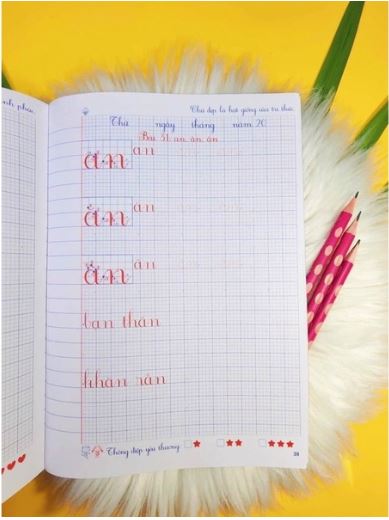 Chữ đẹp là hạt giống của tri thức
Thứ ngày tháng năm 20
Bài 51: an, ăn, ân
an an
ăn ăn
ân ân
bạn thân
khăn rằn
Thông điệp yêu thương:
38